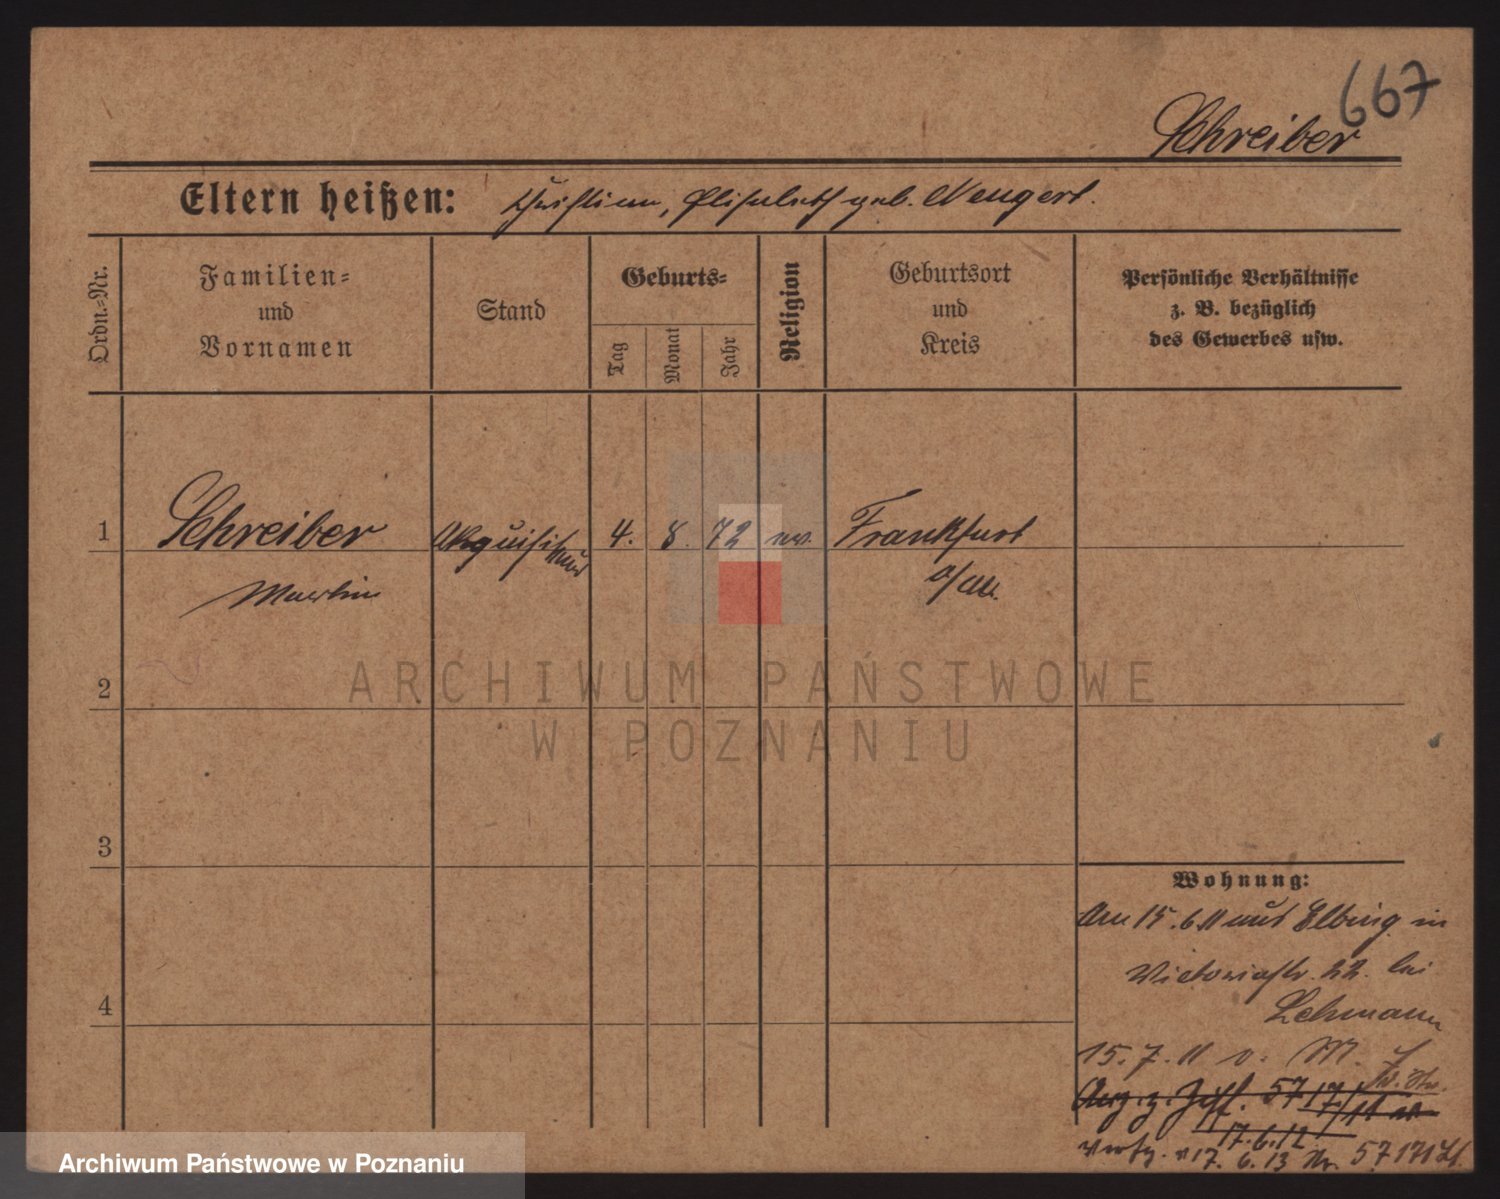 667
Schreiber
Eltern heißen: Christian, Elisabeth geb. Neugert.
Ordn.-Nr.
Familien- und Vornamen
Stand
Geburts-
Tag
Monat
Jahr
Religion
Geburtsort und Kreis
Persönliche Verhältnisse
z. B. bezüglich
des Gewerbes usw.
1
Schreiber
Martin
4.
8.
72
ev.
Frankfurt
a/M.
2
3
4
Wohnung:
Am 15.6.11 aus Elbing in
Victoriastr. 22. bei
Lehmann
15.7.11 v. M.
17.6.12
17. 6. 13 Nr. 57171
ARCHIWUM PAŃSTWOWE
W POZNANIU
Archiwum Państwowe w Poznaniu